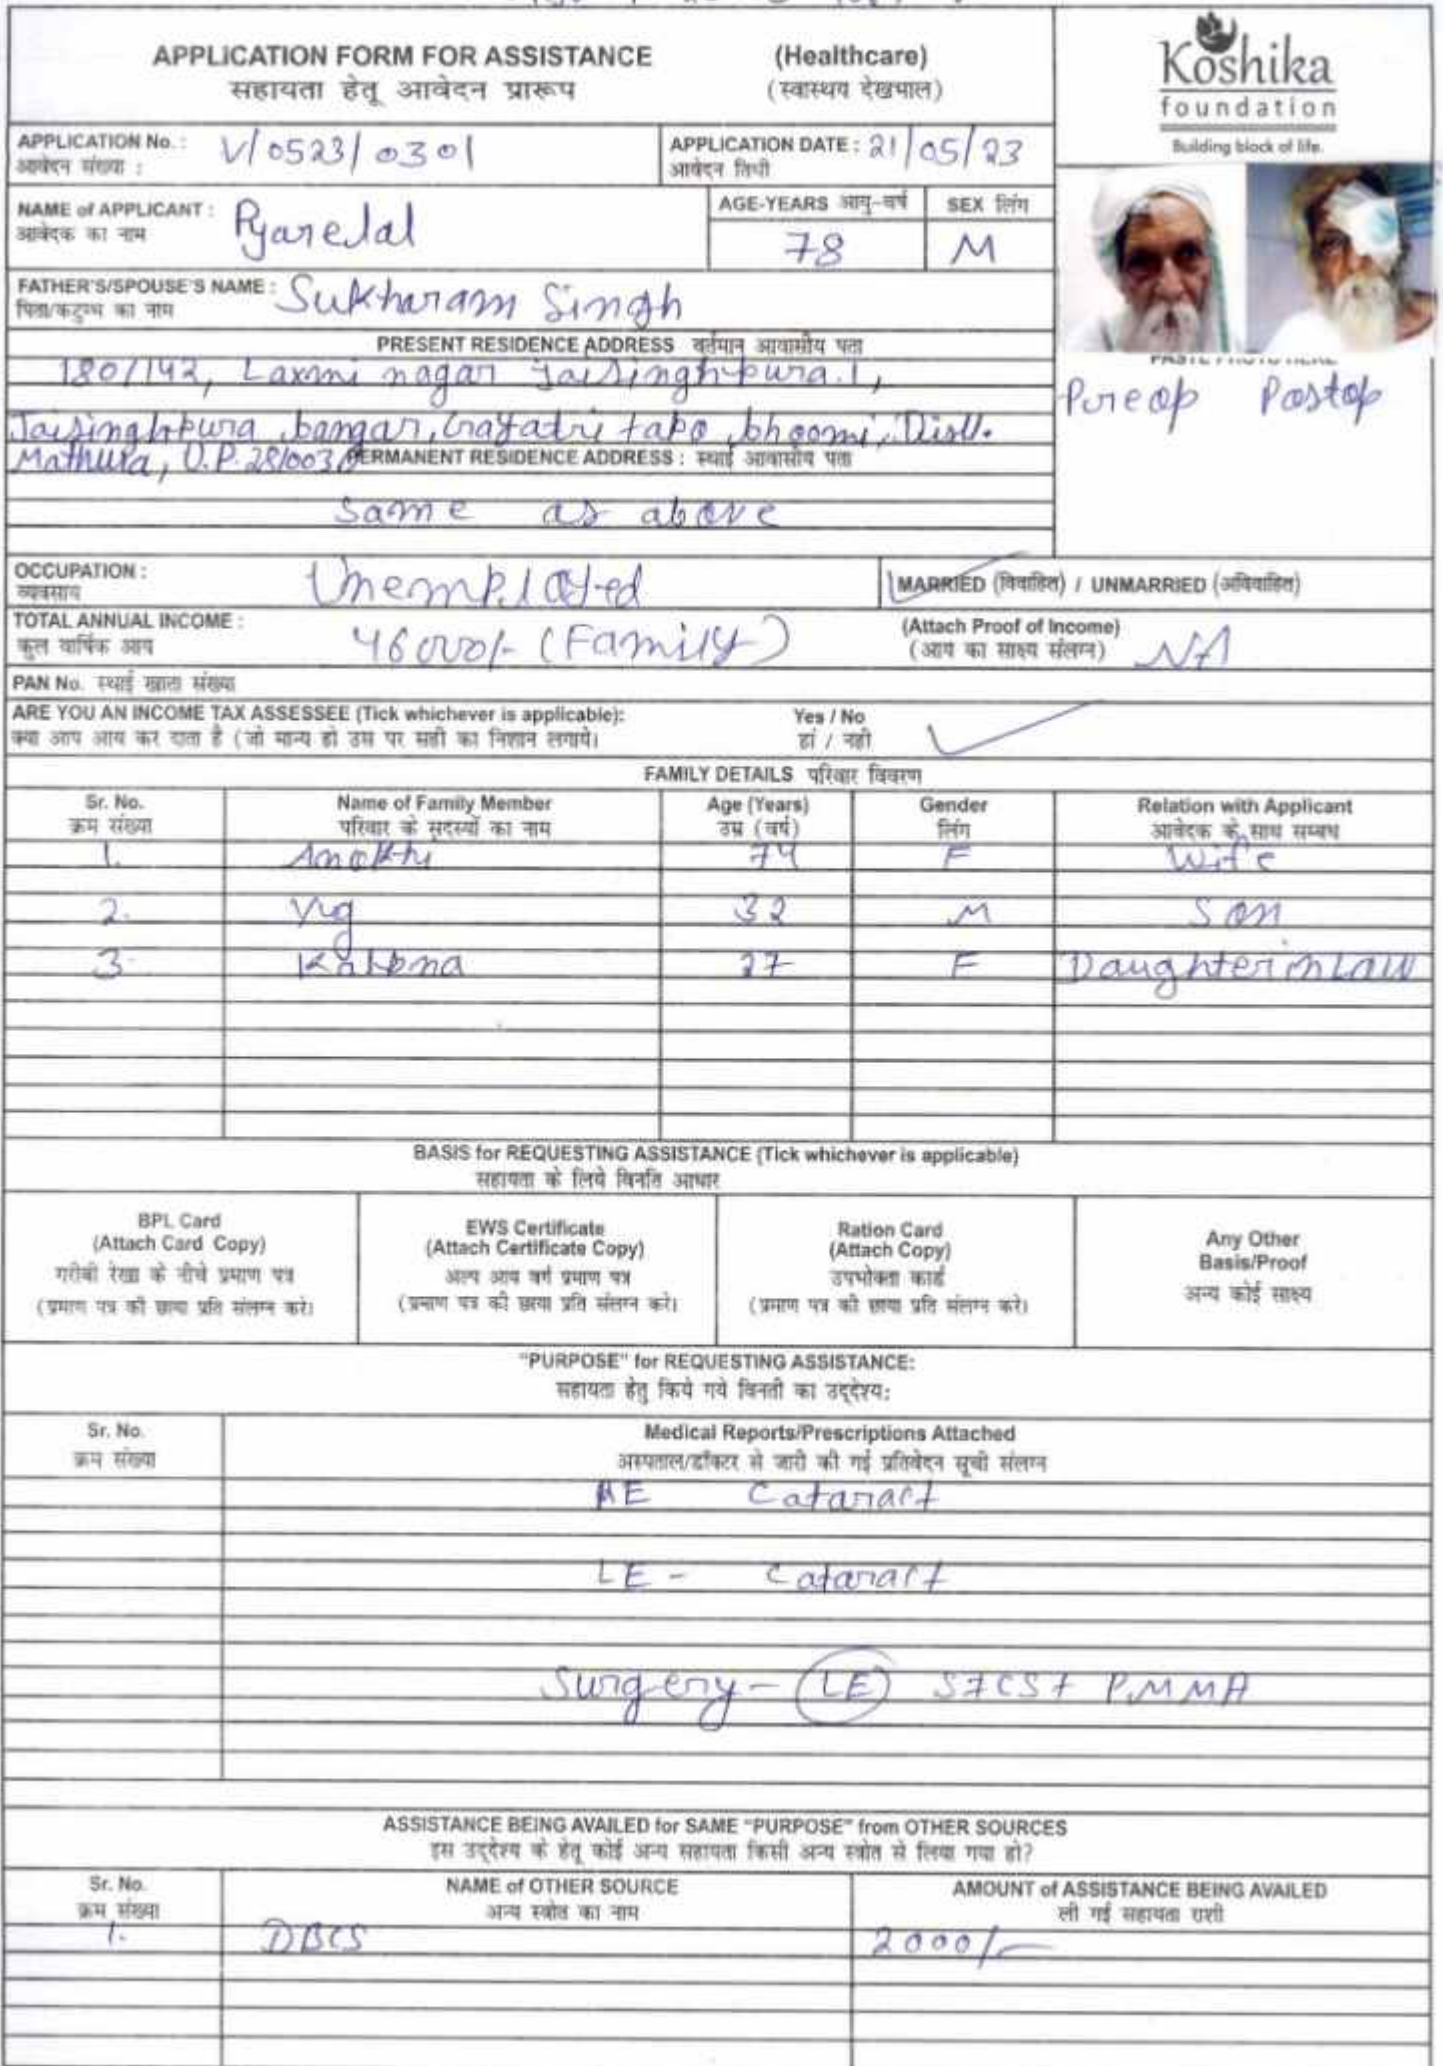 APPLICATION FORM FOR ASSISTANCE (Healthcare)
सहायता हेतू आवेदन प्रारूप (स्वास्थय देखभाल)
Koshika
foundation
Building block of life.
APPLICATION No. : V/0523/0301
आवेदन संख्या :
APPLICATION DATE : 21/05/23
आवेदन तिथी
NAME of APPLICANT : Pyarelal
आवेदक का नाम
AGE-YEARS आयु-वर्ष
78
SEX लिंग
M
FATHER'S/SPOUSE'S NAME : Sukharam Singh
पिता/कटुम्ब का नाम
PASTE PHOTO HERE
Preop Postop
PRESENT RESIDENCE ADDRESS वर्तमान आवासीय पता
180/142, Laxmi nagar Jaisinghpura.1,
Jaisinghpura bangar, Gayatri tapo bhoomi, Distt.
Mathura, U.P. 281003
PERMANENT RESIDENCE ADDRESS : स्थाई आवासीय पता
Same as above
OCCUPATION : Unemployed
व्यवसाय
MARRIED (विवाहित) / UNMARRIED (अविवाहित)
TOTAL ANNUAL INCOME : 46000/- (Family)
कुल वार्षिक आय
(Attach Proof of Income) NA
(आय का साक्ष्य संलग्न)
PAN No. स्थाई खाता संख्या
ARE YOU AN INCOME TAX ASSESSEE (Tick whichever is applicable): Yes / No
क्या आप आय कर दाता है (जो मान्य हो उस पर सही का निशान लगाये। हां / नही
FAMILY DETAILS परिवार विवरण
Sr. No. Name of Family Member Age (Years) Gender Relation with Applicant
क्रम संख्या परिवार के सदस्यों का नाम उम्र (वर्ष) लिंग आवेदक के साथ सम्बध
1. 74 F Wife
2. Yug 32 M Son
3. Kalpna 27 F Daughter in Law
BASIS for REQUESTING ASSISTANCE (Tick whichever is applicable)
सहायता के लिये विनति आधार
BPL Card
(Attach Card Copy)
गरीबी रेखा के नीचे प्रमाण पत्र
(प्रमाण पत्र की छाया प्रति संलग्न करे।
EWS Certificate
(Attach Certificate Copy)
अल्प आय वर्ग प्रमाण पत्र
(प्रमाण पत्र की छाया प्रति संलग्न करे।
Ration Card
(Attach Copy)
उपभोक्ता कार्ड
(प्रमाण पत्र की छाया प्रति संलग्न करे।
Any Other
Basis/Proof
अन्य कोई साक्ष्य
"PURPOSE" for REQUESTING ASSISTANCE:
सहायता हेतु किये गये विनती का उद्देश्य:
Sr. No. Medical Reports/Prescriptions Attached
क्रम संख्या अस्पताल/डॉक्टर से जारी की गई प्रतिवेदन सूची संलग्न
RE Cataract
LE - Cataract
Surgery - (LE) SICS + PMMA
ASSISTANCE BEING AVAILED for SAME "PURPOSE" from OTHER SOURCES
इस उद्देश्य के हेतू कोई अन्य सहायता किसी अन्य स्त्रोत से लिया गया हो?
Sr. No. NAME of OTHER SOURCE AMOUNT of ASSISTANCE BEING AVAILED
क्रम संख्या अन्य स्त्रोत का नाम ली गई सहायता राशी
1. DBCS 2000/-